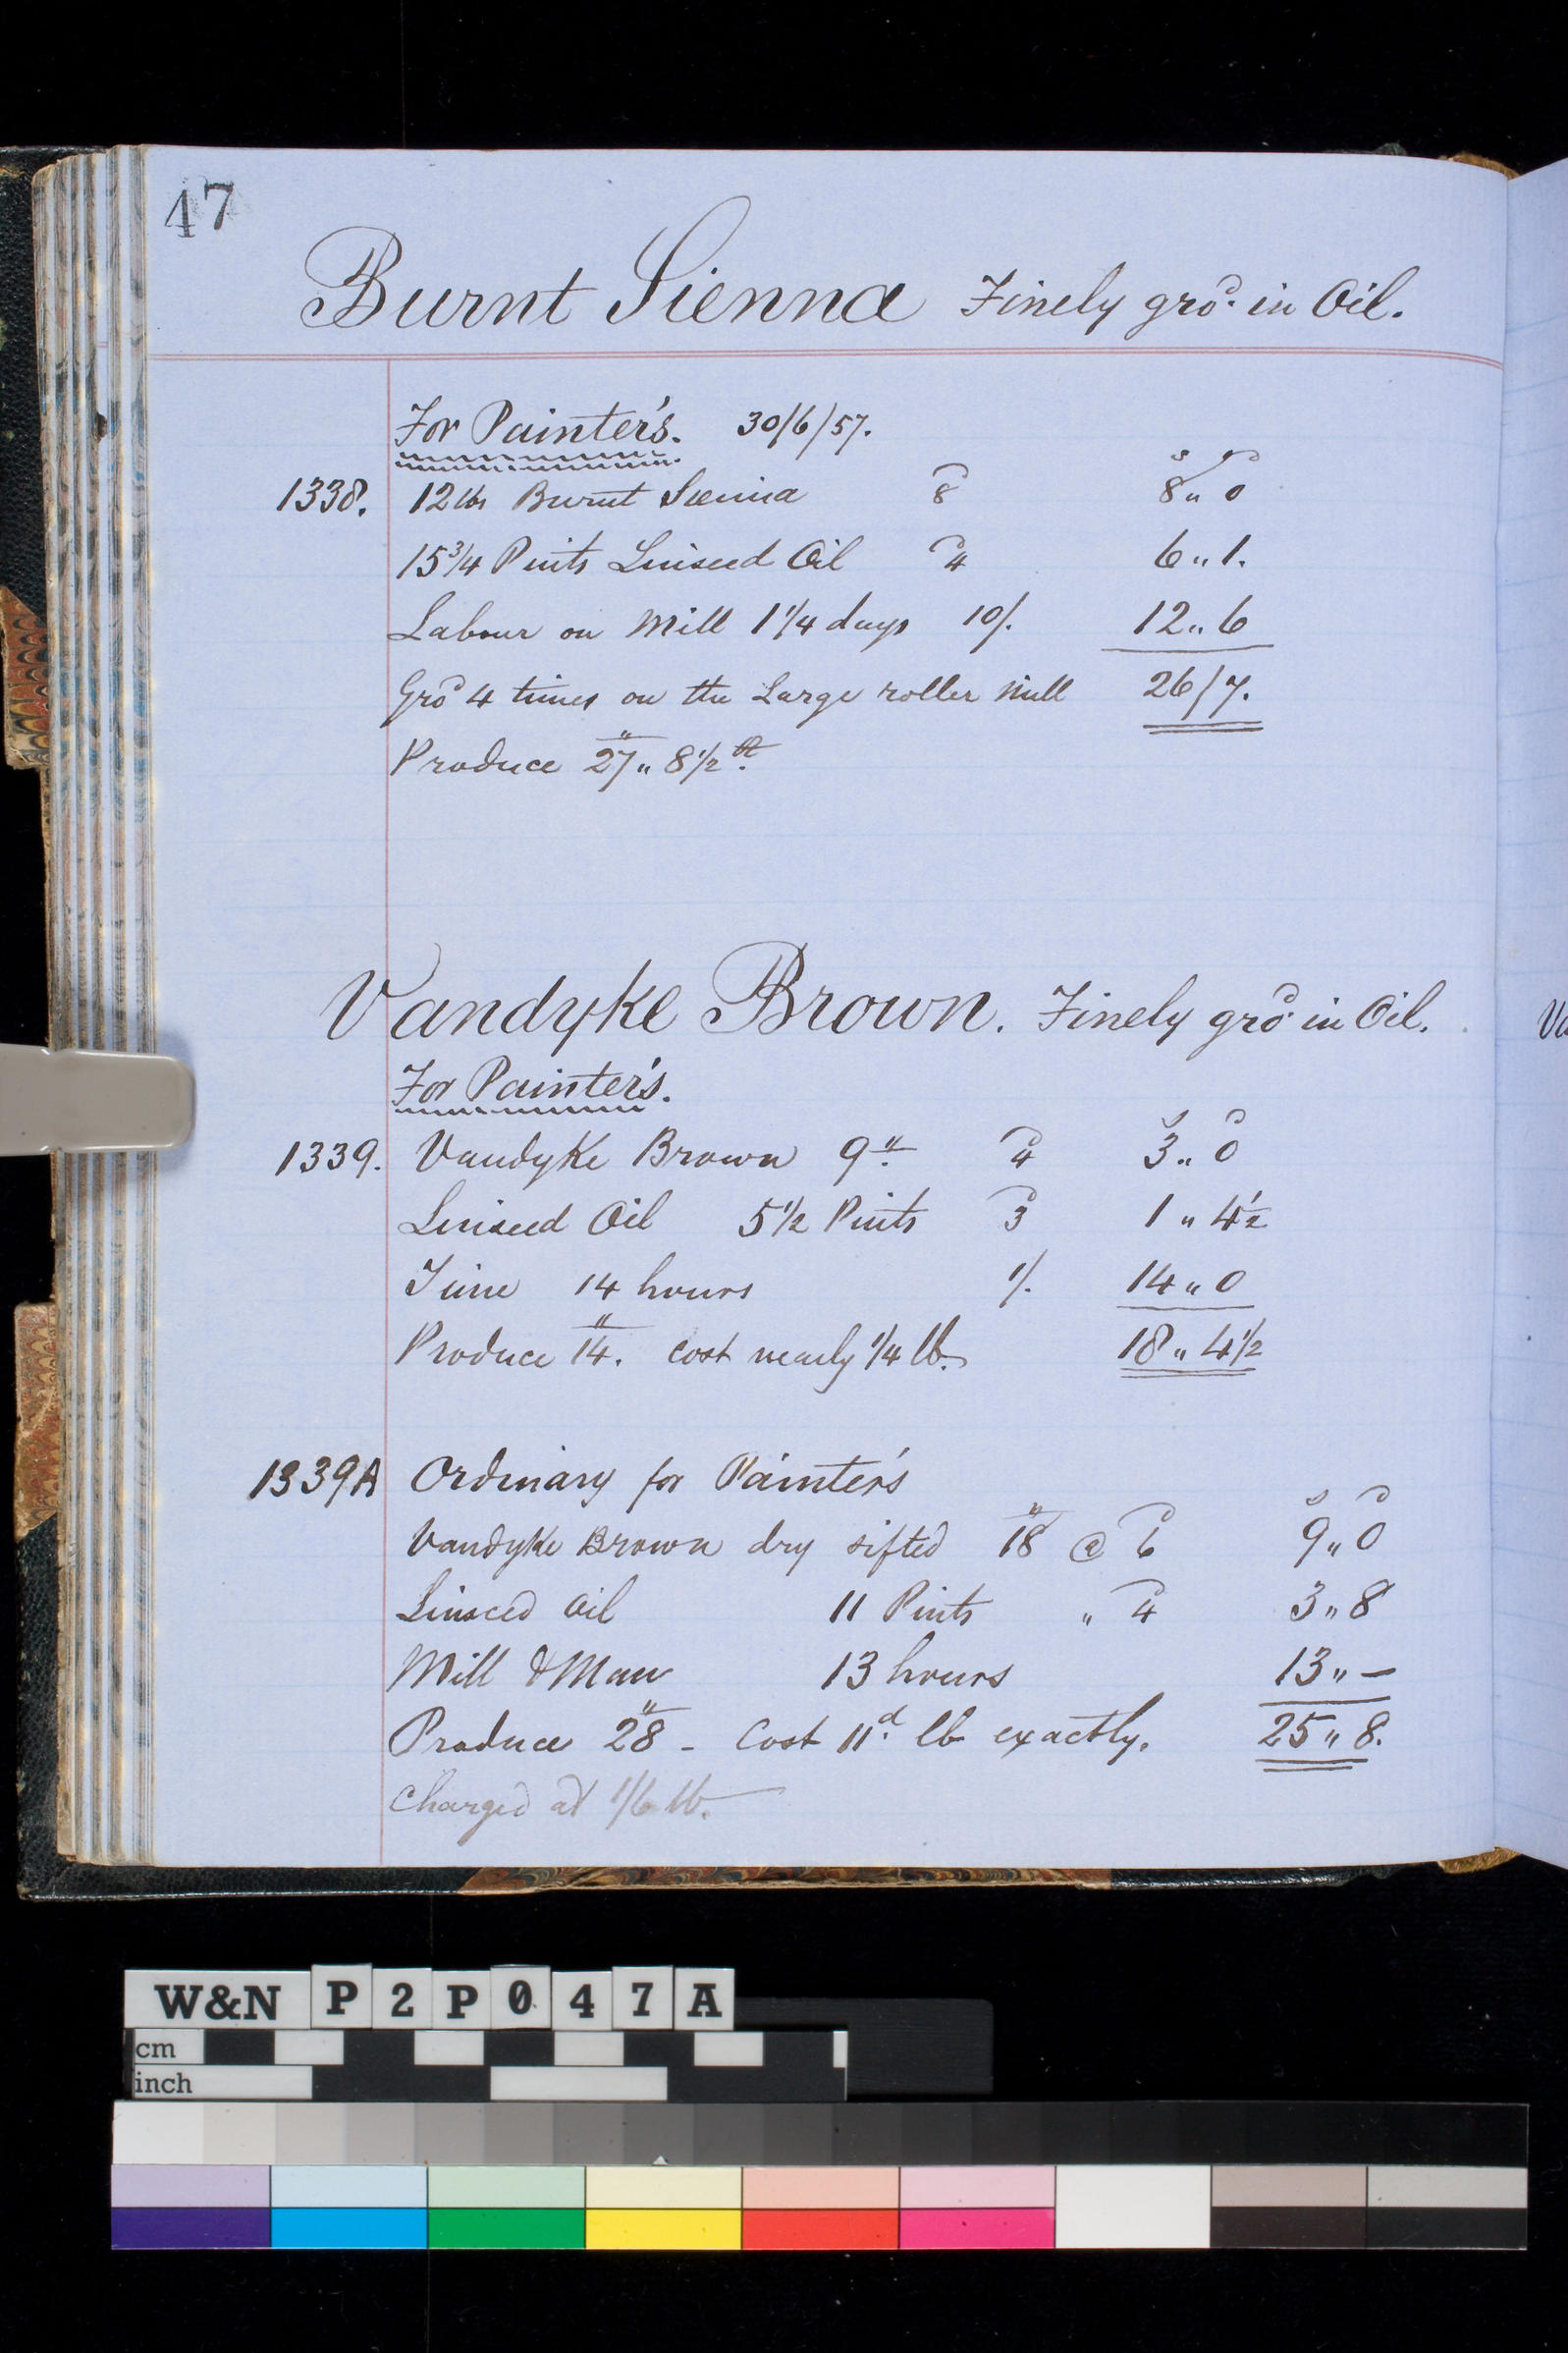 47
Burnt Sienna Finely gro^d. in Oil.
For Painter's. 30/6/57.
s d
1338. 12 lbs Burnt Sienna 8^d 8" 0
15 3/4 Pints Linseed Oil 4^d 6" 1.
Labour on Mill 1 1/4 days 10/. 12" 6
Gro^d 4 times on the Large roller Mill 26/7.
Produce 27" 8 1/2
Vandyke Brown. Finely gro^d. in Oil.
For Painter's.
s d
1339. Vandyke Brown 9^lb 4^d 3" 0
Linseed Oil 5 1/2 Pints 3^d 1" 4 1/2
Time 14 hours 1/. 14" 0
Produce 14. cost nearly 1/4 lb. 18" 4 1/2
1339A Ordinary for Painter's
s d
Vandyke Brown dry sifted 18 @ 6^d 9" 0
Linseed Oil 11 Pints " 4^d 3" 8
Mill & Man 13 hours 13" –
Produce 28 – Cost 11^d. lb exactly. 25" 8.
Charged at 1/6 lb.
Va
W&N P2P047A
cm
inch